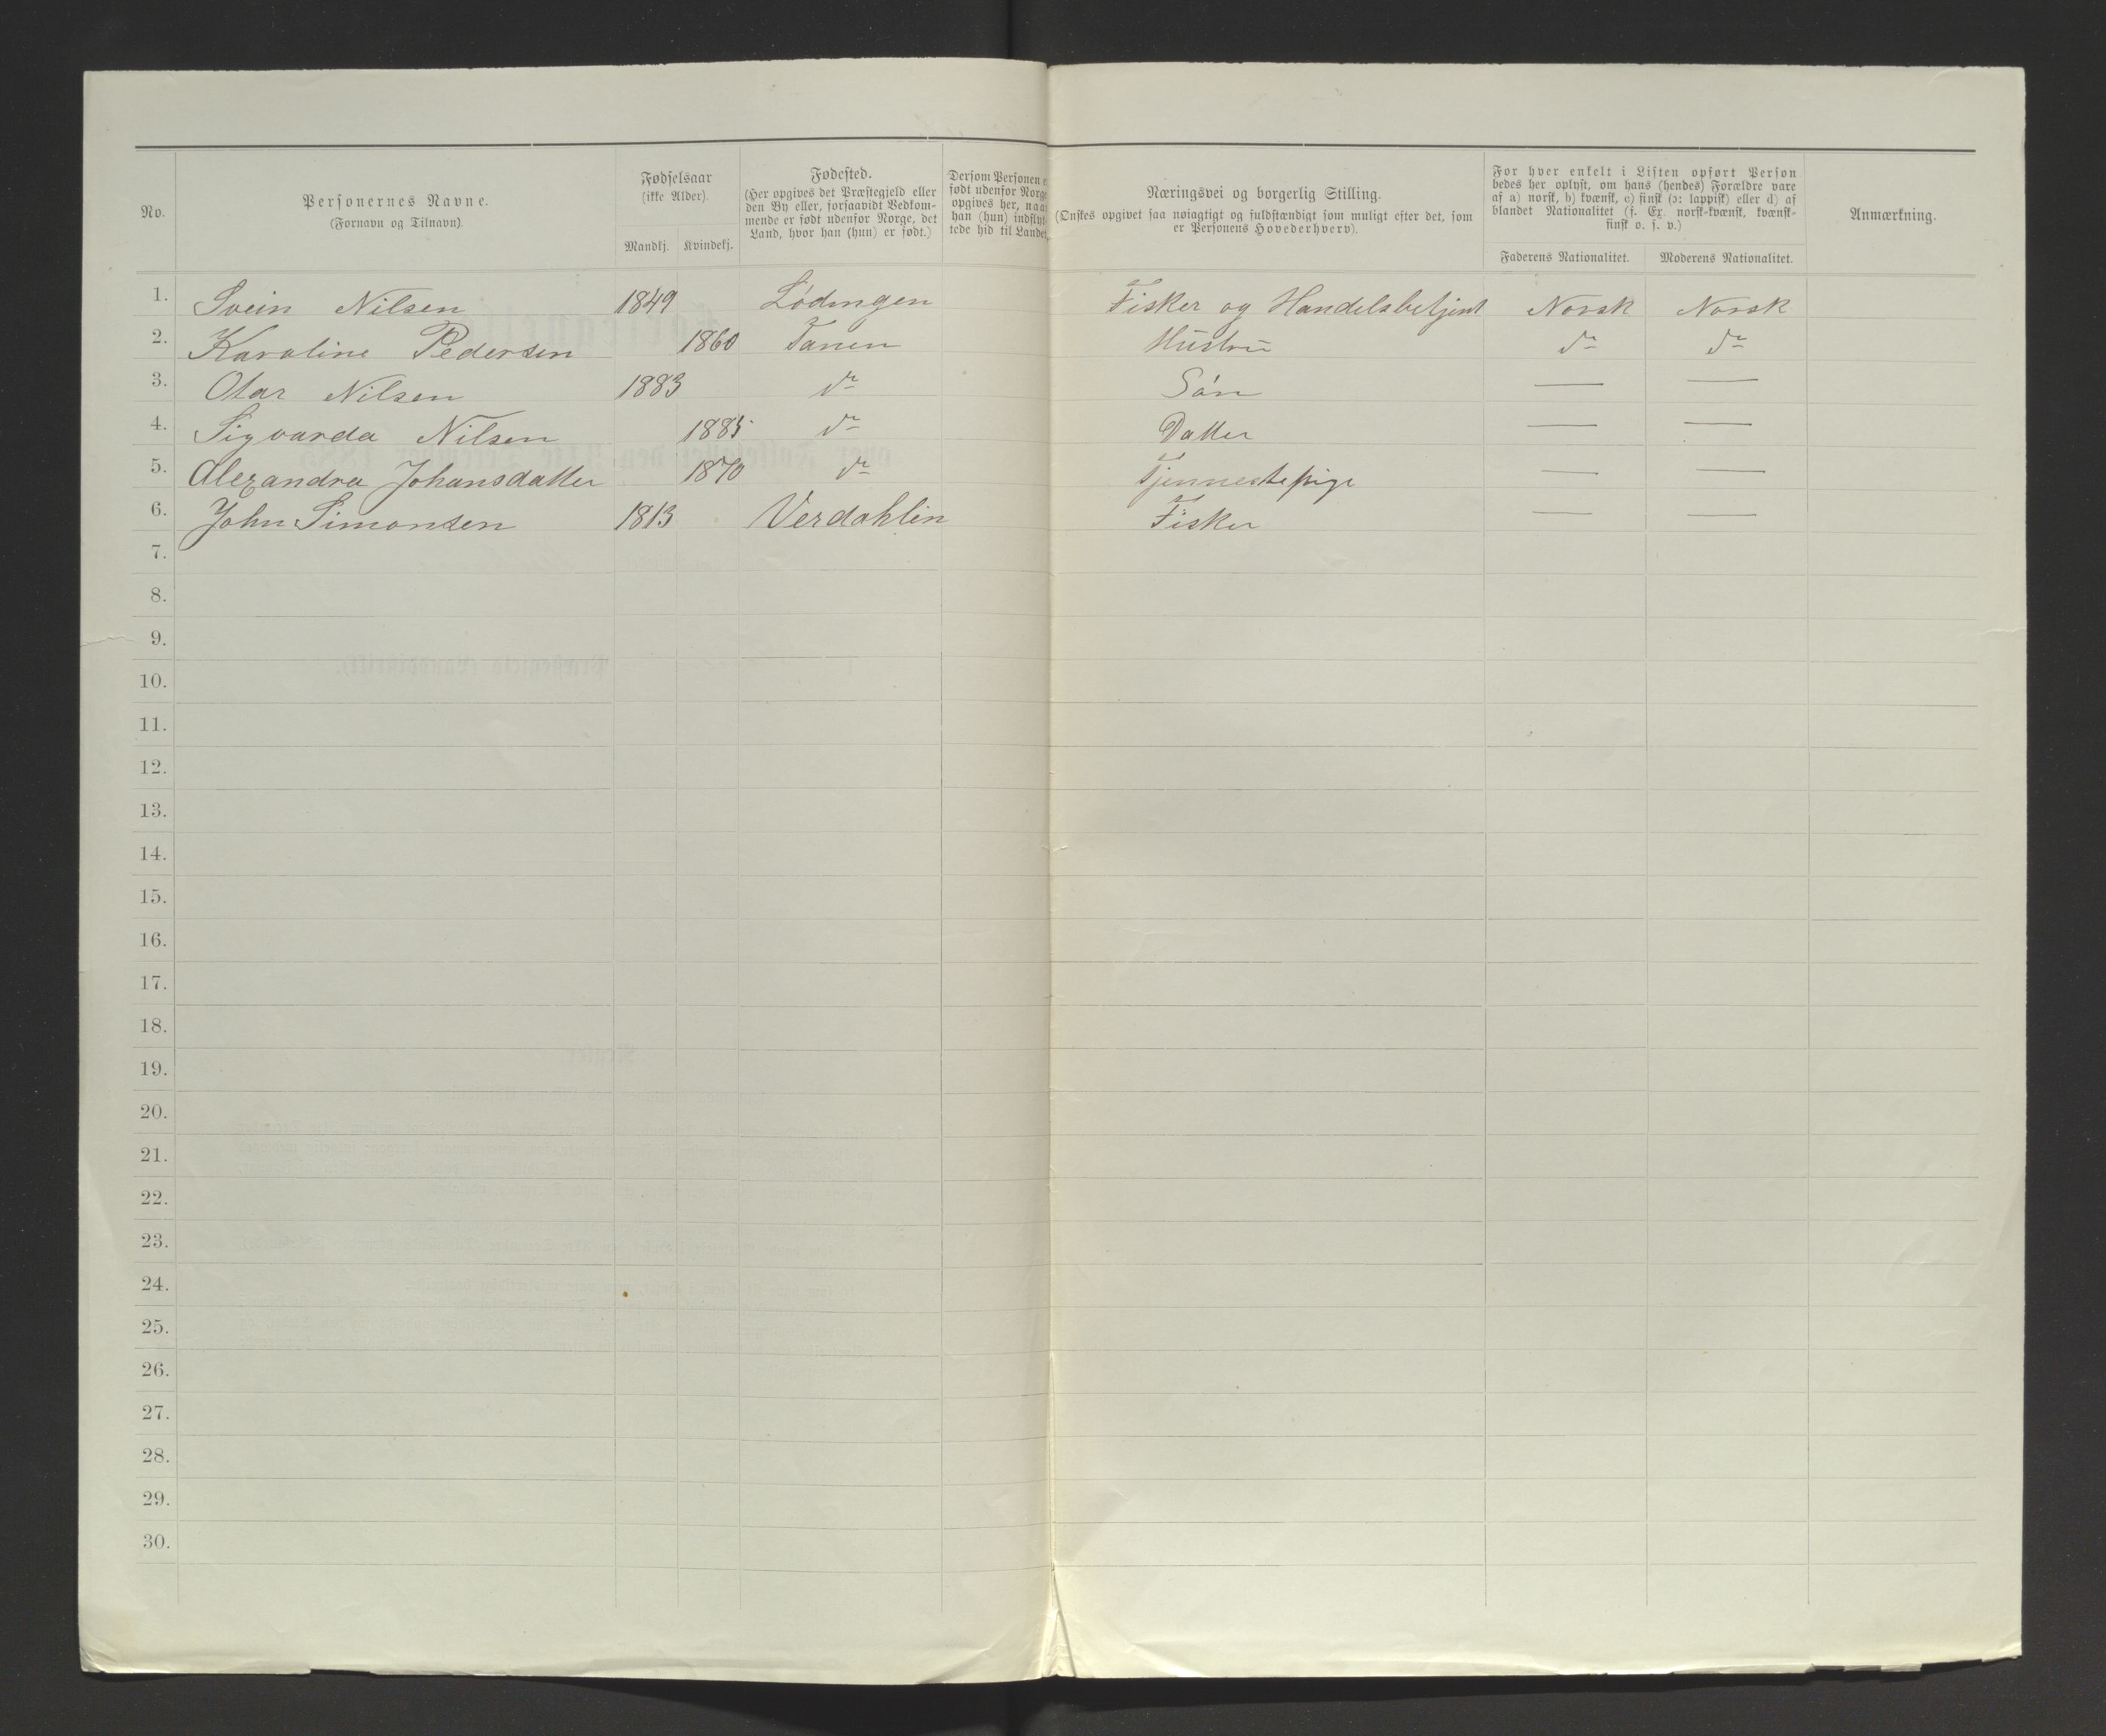 No.
Personernes Navne.
(Fornavn og Tilnavn).
Fødselsaar
(ikke Alder).
Mandkj. Kvindekj.
Fødested.
(Her opgives det Præstegjeld eller
den By eller, forsaavidt Vedkom-
mende er født udenfor Norge, det
Land, hvor han (hun) er født.)
Dersom Personen e
født udenfor Norge
opgives her, naar
han (hun) indflyt-
tede hid til Landet.
Næringsvei og borgerlig Stilling.
(Ønskes opgivet saa nøiagtigt og fuldstændigt som muligt efter det, som
er Personens Hovederhverv).
For hver enkelt i Listen opført Person
bedes her oplyst, om hans (hendes) Forældre vare
af a) norsk, b) kvænsk, c) finsk (ɔ: lappisk) eller d) af
blandet Nationalitet (f. Ex. norsk-kvænsk, kvænsk-
finsk o. s. v.)
Faderens Nationalitet. Moderens Nationalitet.
Anmærkning.
1. Svein Nilsen 1849 Lødingen Fisker og Handelsbetjent Norsk Norsk
2. Karoline Pedersen 1860 Tanen Hustru do do
3. Otar Nilsen 1883 do Søn — —
4. Sigvarda Nilsen 1885 do Datter — —
5. Alexandra Johansdatter 1870 do Tjennestepige — —
6. John Simonsen 1813 Verdahlin Fisker — —
7.
8.
9.
10.
11.
12.
13.
14.
15.
16.
17.
18.
19.
20.
21.
22.
23.
24.
25.
26.
27.
28.
29.
30.